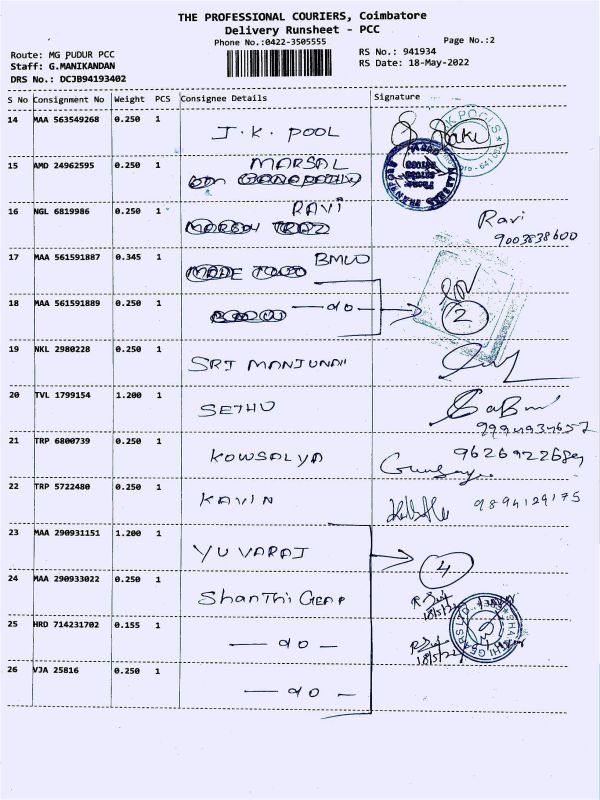 THE PROFESSIONAL COURIERS, Coimbatore
Delivery Runsheet - PCC
Phone No.:0422-3505555
Page No.:2
Route: MG PUDUR PCC
RS No.: 941934
Staff: G.MANIKANDAN
RS Date: 18-May-2022
DRS No.: DCJB94193402
S No Consignment No Weight PCS Consignee Details Signature
14 MAA 563549268 0.250 1 J.K. POOL
15 AMD 24962595 0.250 1 MARSAL
16 NGL 6819986 0.250 1 RAVI Ravi
9003838600
17 MAA 561591887 0.345 1 BMW
18 MAA 561591889 0.250 1 — do — 2
19 NKL 2980228 0.250 1 SRI MANJUNA
20 TVL 1799154 1.200 1 SETHU
9994934657
21 TRP 6800739 0.250 1 KOWSALYA
22 TRP 5722480 0.250 1 KAVIN 9894129175
23 MAA 290931151 1.200 1 YUVARAJ 4
24 MAA 290933022 0.250 1 Shanthi Gear
18/5/22
25 HRD 714231702 0.155 1 — do —
18/5/22
26 VJA 25816 0.250 1 — do —